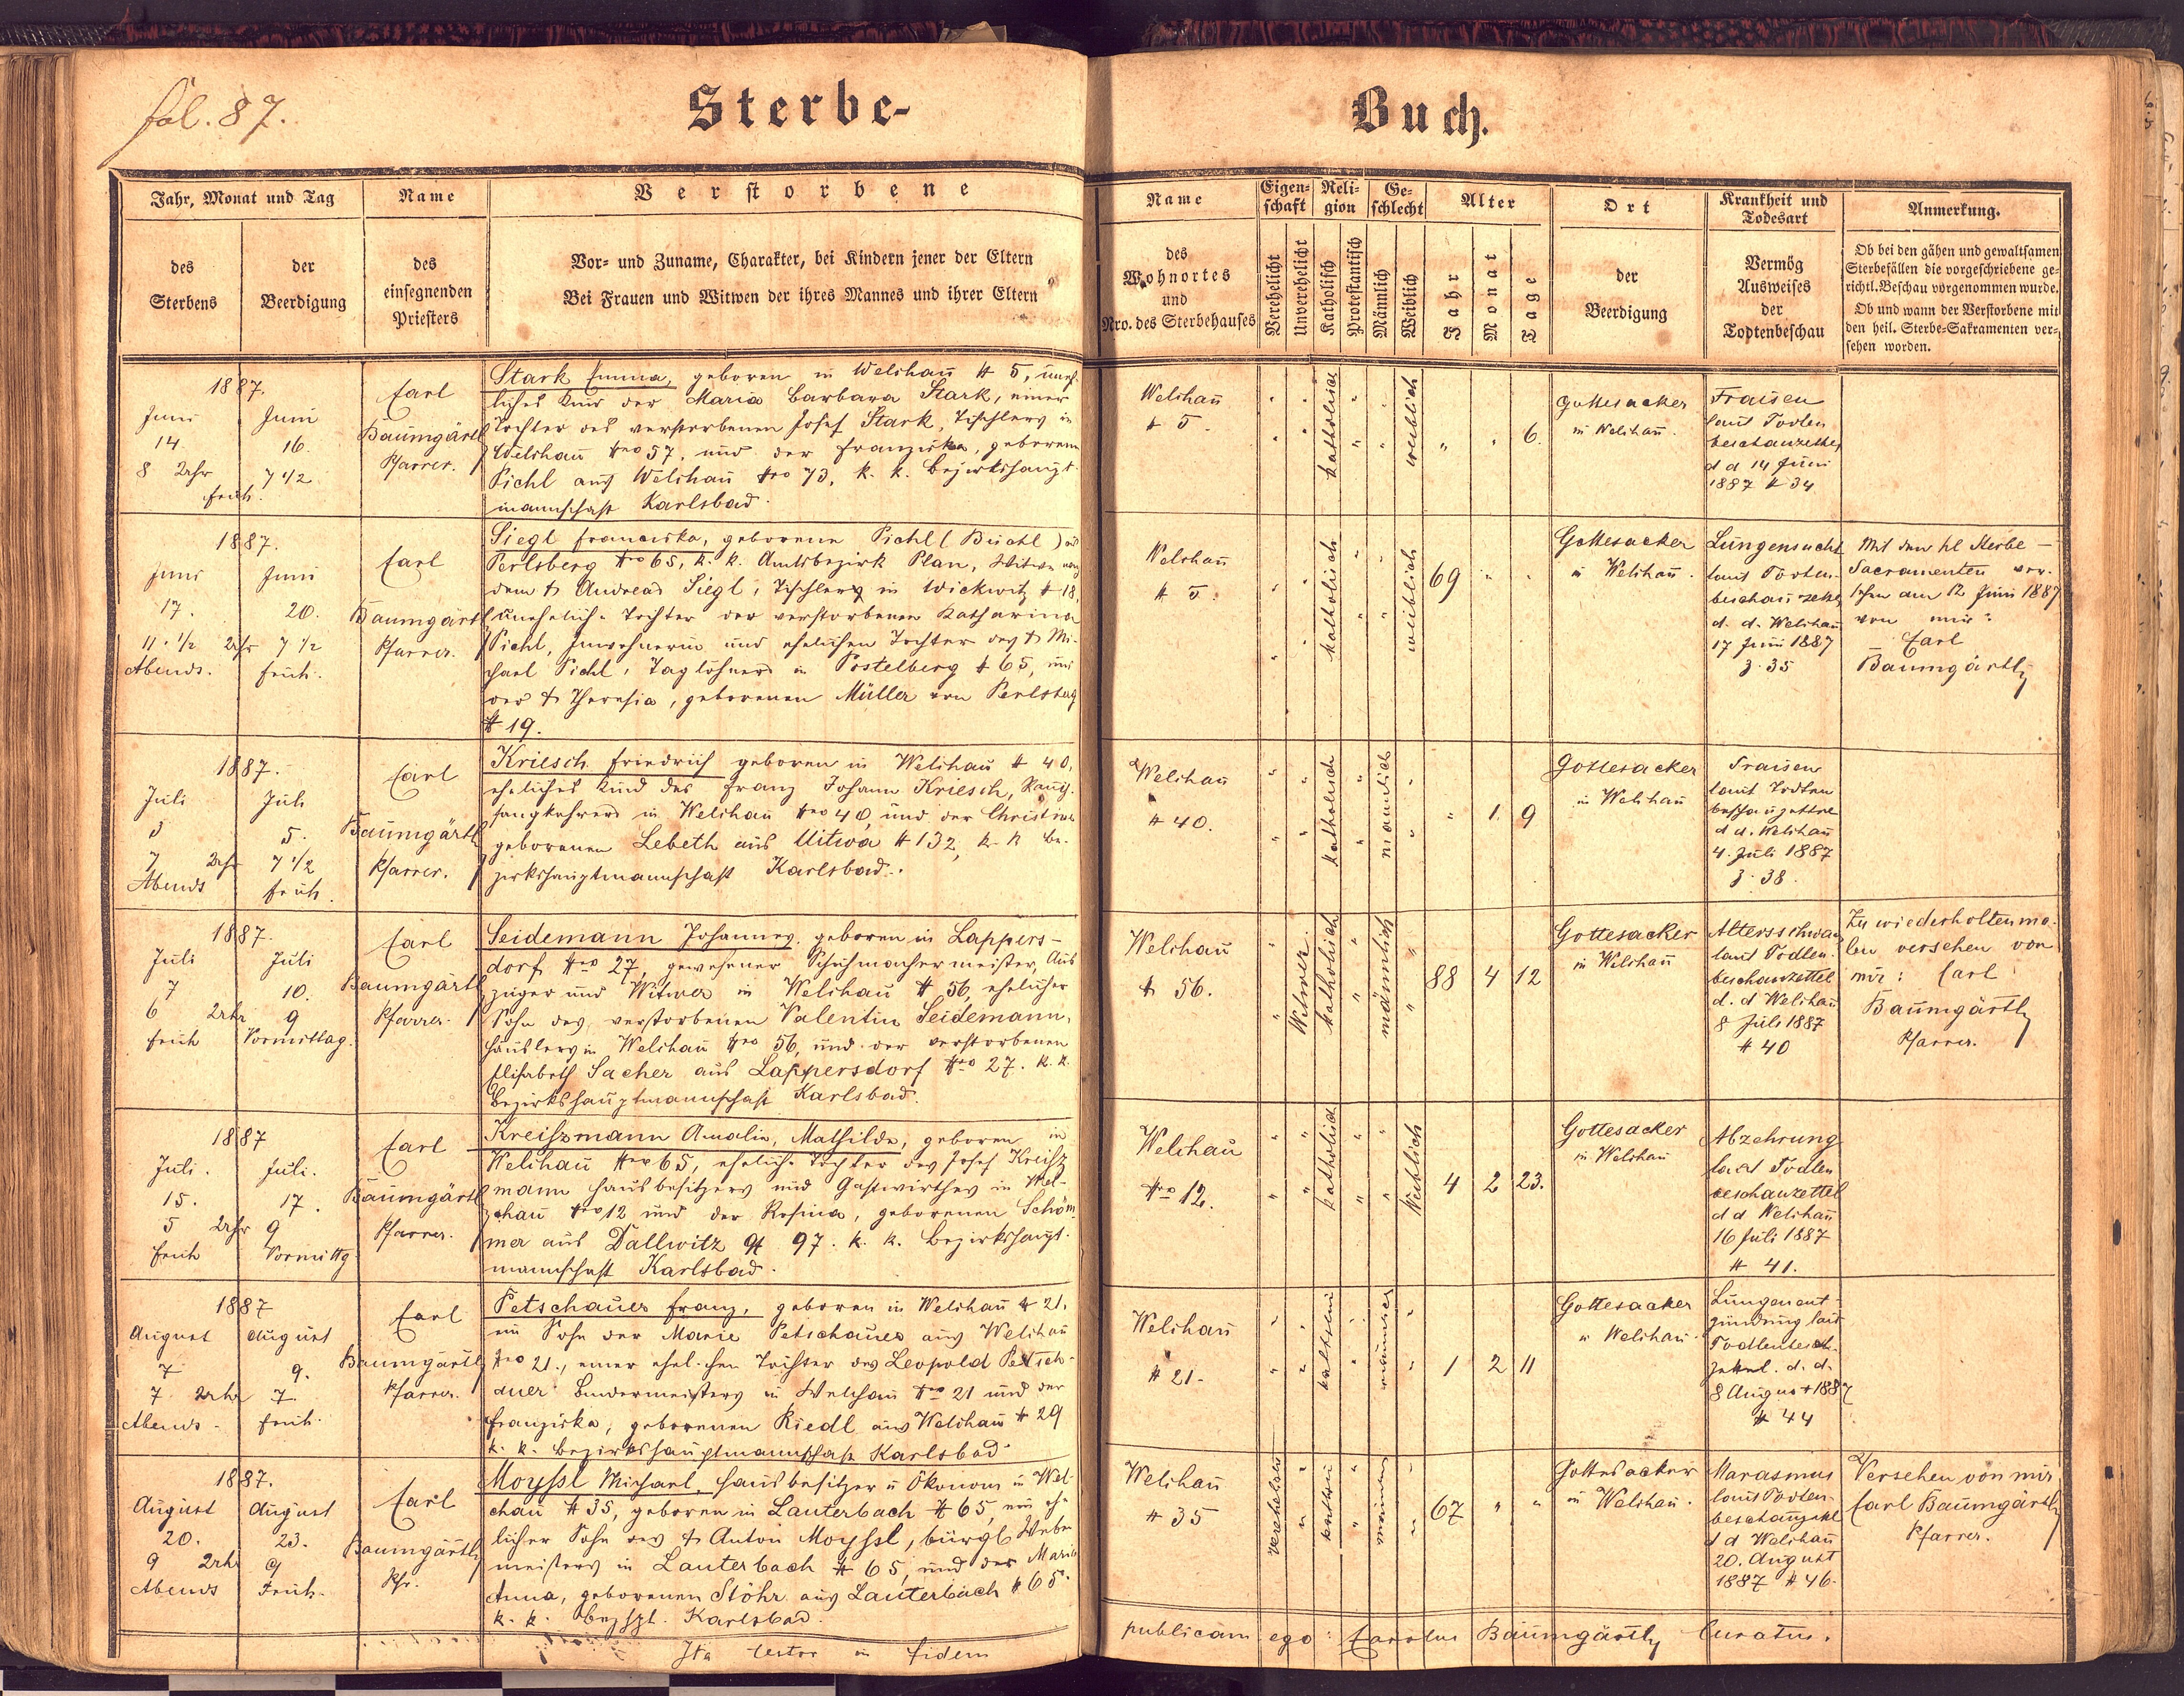 fol. 87.
Sterbe-
Buch.
Jahr, Monat und Tag
Name
Verstorbene
des
Sterbens
der
Beerdigung
des
einsegnenden
Priesters
Vor- und Zuname, Charakter, bei Kindern jener der Eltern
Bei Frauen und Witwen der ihres Mannes und ihrer Eltern
Name
Eigen-
schaft
Reli-
gion
Ge-
schlecht
Alter
Ort
Krankheit und
Todesart
Anmerkung.
des
Wohnortes
und
Nro. des Sterbehauses
Verehelicht
Unverehelicht
Katholisch
Protestantisch
Männlich
Weiblich
Jahr
Monat
Tage
der
Beerdigung
Vermög
Ausweises
der
Todtenbeschau
Ob bei den gähen und gewaltsamen
Sterbefällen die vorgeschriebene ge-
richtl. Beschau vorgenommen wurde.
Ob und wann der Verstorbene mit
den heil. Sterbe-Sakramenten ver-
sehen worden.
1887.
Juni
14.
8 Uhr
früh.
Juni
16.
7 1/2
Carl
Baumgärtl
Pfarrer.
Stark Emma, geboren in Welchau # 5, uneh-
liches Kind der Maria Barbara Stark, einer
Tochter des verstorbenen Josef Stark, Tischlers in
Welchau Nro 57, und der Franziska, geborenen
Pichl aus Welchau Nro 73, k. k. Bezirkshaupt-
mannschaft Karlsbad.
Welchau
# 5.
katholisch
weiblich
6.
Gottesacker
in Welchau.
Fraisen
laut Todten
beschauzettel
d d 14 Juni
1887 # 34
1887.
Juni
17.
11 1/2 Uhr
Abends.
Juni
20.
7 1/2
früh.
Carl
Baumgärtl
Pfarrer.
Siegl Franziska, geborene Pichl (Büchl) aus
Perlsberg Nro 65, k. k. Amtsbezirk Plan, Witwe nach
dem † Andreas Siegl, Tischlers in Wickwitz # 18,
uneheliche Tochter der verstorbenen Katharina
Pichl, Inwohnerin und ehelichen Tochter des † Mi-
chael Pichl, Taglöhners in Postelberg # 65, und
der † Theresia, geborenen Müller von Perlsberg
# 19.
Welchau
# 5.
katholisch
weiblich
69
Gottesacker
in Welchau.
Lungensucht
laut Todten-
beschauzettel
d. d. Welchau
17 Juni 1887
z. 35
Mit den hl Sterbe-
Sacramenten ver-
sehn am 12 Juni 1887
von mir:
Carl
Baumgärtl
1887.
Juli
3
7 Uhr
Abends
Juli
5.
7 1/2
früh.
Carl
Baumgärtl
Pfarrer.
Kriesch Friedrich geboren in Welchau # 40,
eheliches Kind des Franz Johann Kriesch, Rauch-
fangkehrers in Welchau Nro 40, und der Christine
geborenen Lebeth aus Uitwa # 132, k. k Be-
zirkshauptmannschaft Karlsbad.
Welchau
# 40.
katholisch
männlich
1 9
Gottesacker
in Welchau
Fraisen
laut Todten
beschauzettel
d d. Welchau
4. Juli 1887
z. 38.
1887.
Juli
7
6 Uhr
früh
Juli
10.
9
Vormittag.
Carl
Baumgärtl
Pfarrer.
Seidemann Johannes, geboren in Lappers-
dorf Nro 27, gewesener Schuhmachermeister, Aus
züger und Witwer in Welchau # 56, ehelicher
Sohn des verstorbenen Valentin Seidemann,
Häuslers in Welchau Nro 56, und der verstorbenen
Elisabeth Sacher aus Lappersdorf Nro 27. k. k.
Bezirkshauptmannschaft Karlsbad.
Welchau
# 56.
Witwer.
katholisch
männlich
88 4 12
Gottesacker
in Welchau
Altersschwäche
laut Todten-
beschauzettel
d. d Welchau
8 Juli 1887
# 40
Zu wiederholtenma-
len versehen von
mir: Carl
Baumgärtl
Pfarrer.
1887
Juli.
15.
5 Uhr
früh
Juli.
17.
9
Vormittg
Carl
Baumgärtl
Pfarrer.
Kreiszmann Amalia, Mathilde, geboren in
Welchau Nro 65, eheliche Tochter des Josef Kreisz
mann Hausbesitzers und Gastwirthes in Wel-
chau Nro 12 und der Rosina, geborenen Schöm
mer aus Dallwitz # 97. k. k. Bezirkshaupt-
mannschaft Karlsbad.
Welchau
Nro 12.
katholisch
Weiblich
4 2 23.
Gottesacker
in Welchau
Abzehrung
laut Todten
beschauzettel
d d Welchau
16 Juli 1887
# 41.
1887
August
7
7 Uhr
Abends.
August
9.
7
früh.
Carl
Baumgärtl
Pfarrer.
Petschauer Franz, geboren in Welchau # 21.
ein Sohn der Marie Petschauer aus Welchau
Nro 21., einer ehelichen Tochter des Leopold Petsch-
auer Bindermeisters in Welchau Nro 21 und der
Franziska, geborenen Riedl aus Welchau # 29
k. k. Bezirkshauptmannschaft Karlsbad.
Welchau
# 21.
männlich
1 2 11
Gottesacker
in Welchau.
Lungenent-
zündung laut
Todtenbesch-
zettel. d. d.
8 August 1887
# 44
1887.
August
20.
9 Uhr
Abends
August
23.
9
Früh.
Carl
Baumgärtl
Pfr.
Moyssl Michael, Hausbesitzer u Ökonom in Wel-
chau # 35, geboren in Lauterbach # 65, ein ehe
licher Sohn des † Anton Moyssl, bürgl Weber
meisters in Lauterbach # 65, und der Maria
Anna, geborenen Stöhr aus Lauterbach # 65.
k. k. Bezhpt. Karlsbad.
Welchau
# 35
Verehelicht
67
Gottesacker
in Welchau.
Marasmus
laut Todten-
beschauzettel
d d Welchau
20. August
1887 # 46.
Versehen von mir
Carl Baumgärtl
Pfarrer.
Ita testor in fidem
publicam ego: Carolus Baumgärtl Curatus.